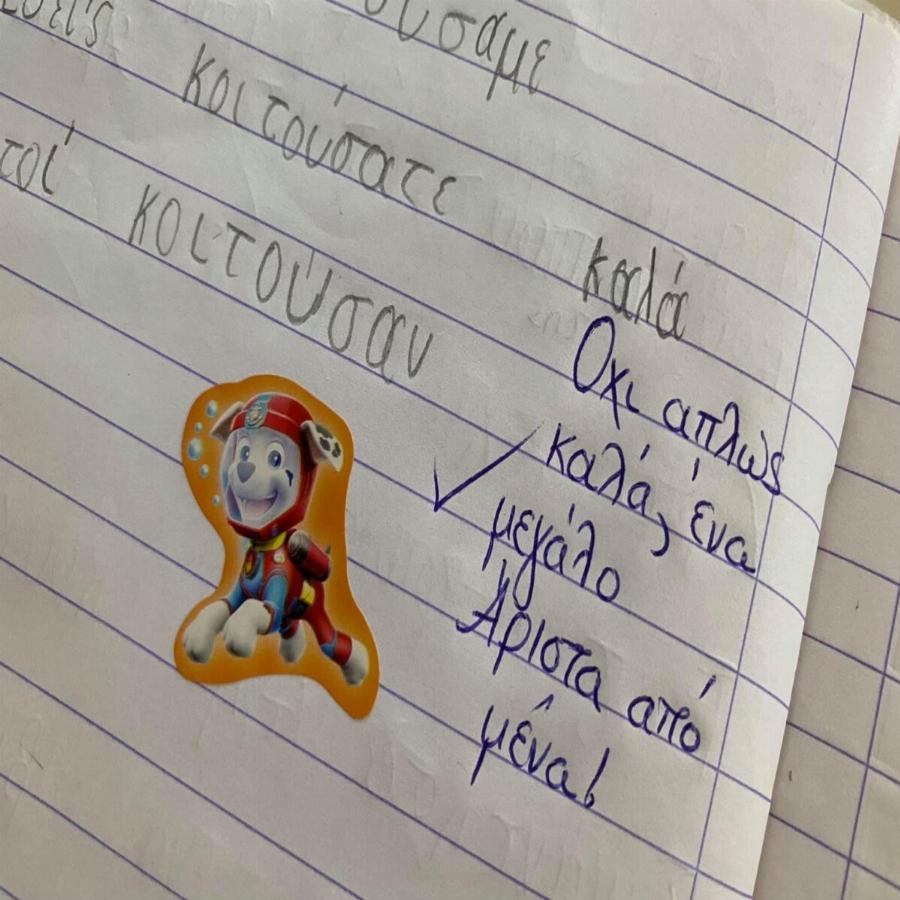 σαμε
κοιτούσατε
τοί κοιτούσαν
καλά
Όχι απλώς
καλά, ένα
μεγάλο
Άριστα από
μένα!